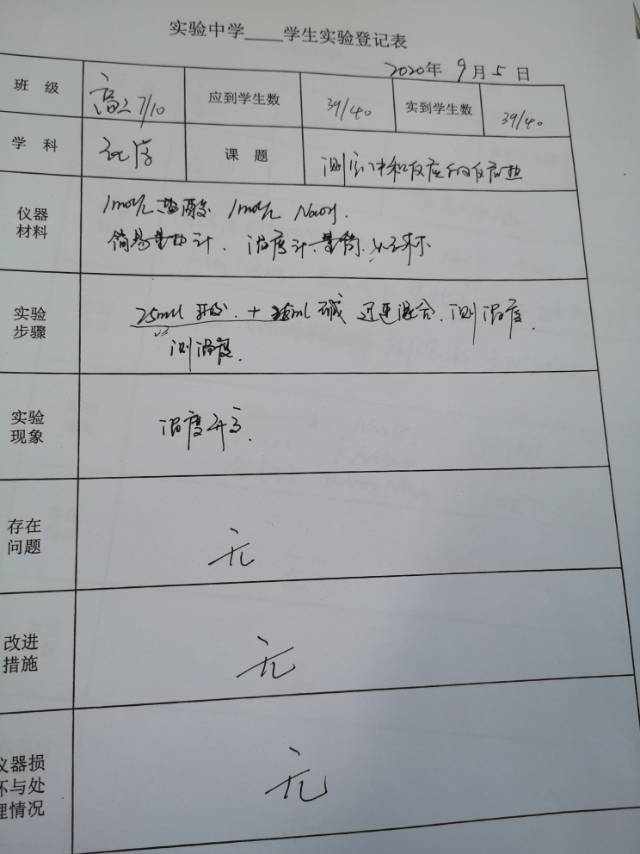 实验中学____学生实验登记表
2020年 9月5日
班 级 高二7/10 应到学生数 39/40 实到学生数 39/40
学 科 化学 课 题 测定中和反应的反应热
仪器 1mol/L盐酸 1mol/L NaOH.
材料 简易量热计. 温度计. 量筒. 烧杯
实验 25ml 盐酸. + 25ml 碱 迅速混合. 测温度.
步骤 测温度.
实验
现象 温度升高.
存在
问题 无
改进
措施 无
仪器损
坏与处 无
理情况